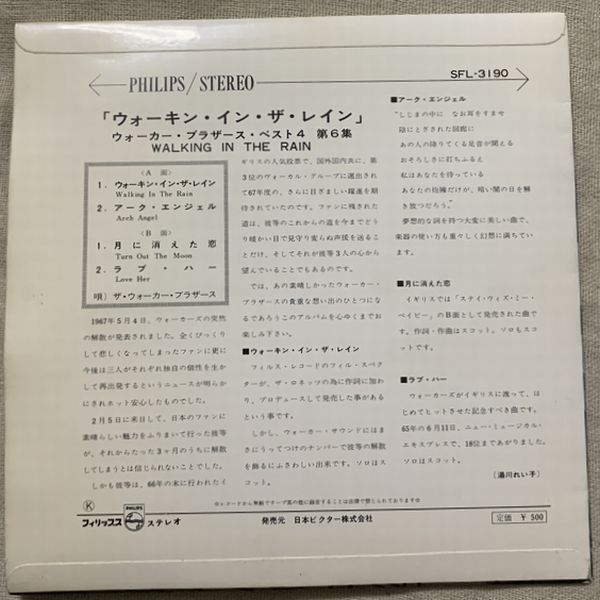 PHILIPS/STEREO
SFL-3190
「ウォーキン・イン・ザ・レイン」
ウォーカー・ブラザース・ベスト4 第6集
WALKING IN THE RAIN
〈A 面〉
1. ウォーキン・イン・ザ・レイン
Walking In The Rain
2. アーク・エンジェル
Arch Angel
〈B 面〉
1. 月に消えた恋
Turn Out The Moon
2. ラブ・ハー
Love Her
唄) ザ・ウォーカー・ブラザース
1967年5月4日、ウォーカーズの突然
の解散が発表されました。全くびっくり
して悲しくなってしまったファンに更に
今後は三人がそれぞれ独自の個性を生か
して再出発するというニュースが明らか
にされホット安心したものでした。
2月5日に来日して、日本のファンに
素晴らしい魅力をふりまいて行った彼等
が、それからたった3ヶ月のうちに解散
してしまうとは信じられないことでした。
しかも彼等は、66年の末に行われたイ
ギリスの人気投票で、国外国内共に、第
3位のヴォーカル・グループに選出され
て67年度の、さらに目ざましい躍進を期
待されていたのです。ファンに残された
道は、彼等のこれからの道を今までどう
り暖かい目で見守り変らぬ声援を送るこ
とだけ、そしてそれが彼等3人の心から
望んでいることでもあるのです。
では、あの素晴しかったウォーカー・
ブラザースの貴重な想い出のひとつにな
るであろうこのアルバムを心ゆくまでお
楽しみ下さい。
■ウォーキン・イン・ザ・レイン
フィルス・レコードのフィル・スペク
ターが、ザ・ロネッツの為に作詞に加わ
り、プロデュースして発売した事がある
という事です。
しかし、ウォーカー・サウンドにはま
さにうってつけのナンバーで彼等の解散
を飾るにふさわしい出来です。ソロはス
コット。
■アーク・エンジェル
"しじまの中に なお耳をすませ
陰にとざされた回廊に
あの人の降りてくる足音が聞える
おそろしさに打ちふるえ
私はあなたを待っている
あなたの抱擁だけが、暗い闇の日を解
き放つだろう。"
夢想的な詞を持つ大変に美しい曲で、
楽器の使い方も重々しく幻想に満ちてい
ます。
■月に消えた恋
イギリスでは「ステイ・ウィズ・ミー・
ベイビー」のB面として発売された曲で
す。作詞・作曲はスコット。ソロもスコ
ットです。
■ラブ・ハー
ウォーカーズがイギリスに渡って、は
じめてヒットさせた記念すべき曲です。
65年の6月11日、ニュー・ミュージカル・
エキスプレスで、18位まであがりました。
ソロはスコット。
(湯川れい子)
☆レコードから無断でテープ其の他に録音することは法律で禁じられております☆
K
フィリップス PHILIPS ステレオ
発売元 日本ビクター株式会社
定価 ¥ 500